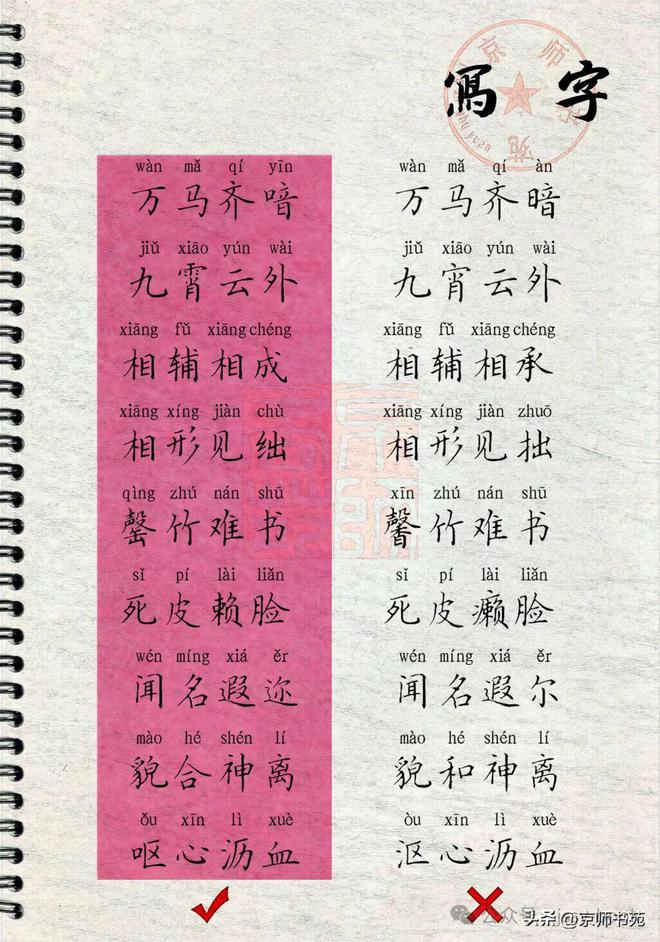 京师书苑
jing shi shu yuan
寫字
wàn mǎ qí yīn
万马齐喑
wàn mǎ qí àn
万马齐暗
jiǔ xiāo yún wài
九霄云外
jiǔ xiāo yún wài
九宵云外
xiāng fǔ xiāng chéng
相辅相成
xiāng fǔ xiāng chéng
相辅相承
xiāng xíng jiàn chù
相形见绌
xiāng xíng jiàn zhuō
相形见拙
qìng zhú nán shū
罄竹难书
xīn zhú nán shū
馨竹难书
sǐ pí lài liǎn
死皮赖脸
sǐ pí lài liǎn
死皮癞脸
wén míng xiá ěr
闻名遐迩
wén míng xiá ěr
闻名遐尔
mào hé shén lí
貌合神离
mào hé shén lí
貌和神离
ǒu xīn lì xuè
呕心沥血
òu xīn lì xuè
沤心沥血
公众号
头条@京师书苑